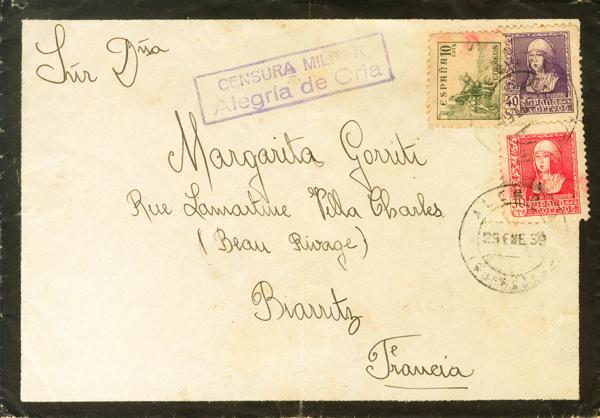 Sra Dña
CENSURA MILITAR
Alegría de Oria
ESPAÑA 10 CTS
CORREOS
40
ESPAÑA
CORREOS
30
CTS
ESPAÑA
CORREOS
Margarita Gorriti
Rue Lamartine Villa Charles
(Beau Rivage)
Biarritz
Francia
25 ENE 39